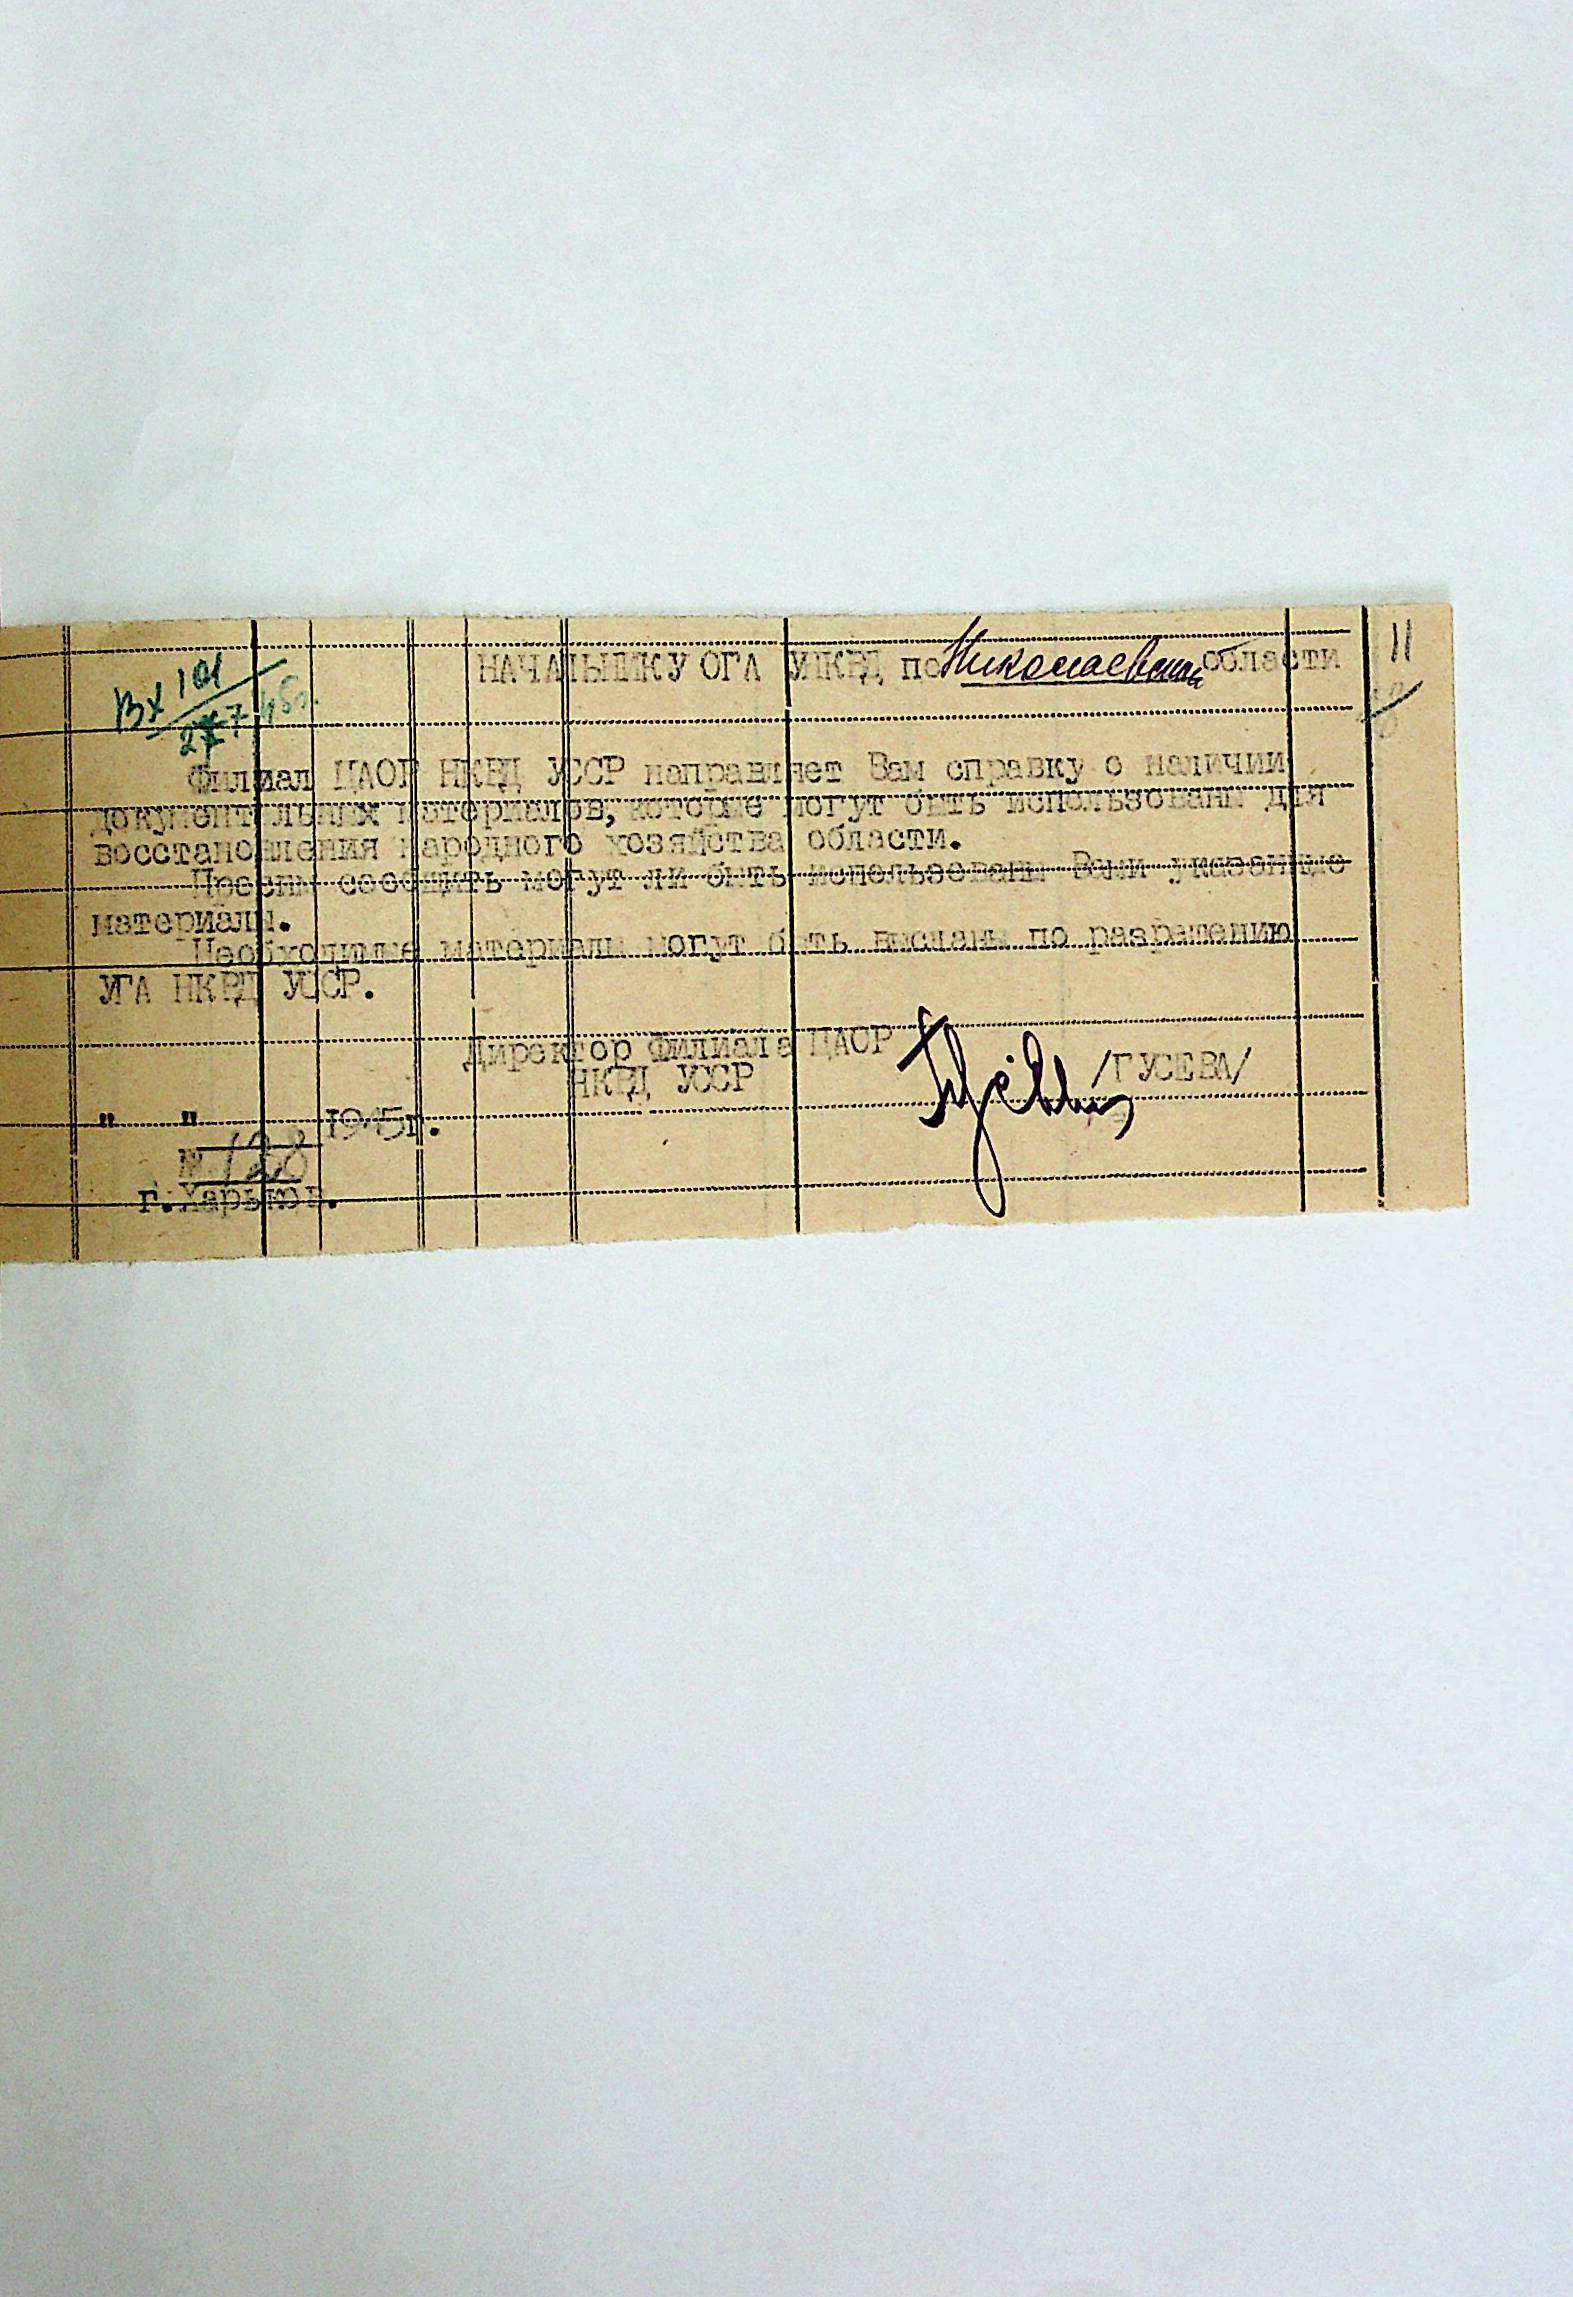 11
Вх 101
27 7 45г.
НАЧАЛЬНИКУ ОГА УНКВД по Николаевской области
Филиал ЦАОР НКВД УССР направляет Вам справку о наличии
документальных материалов, которые могут быть использованы для
восстановления народного хозяйства области.
Просим сообщить могут ли быть использованы Вами указанные
материалы.
Необходимые материалы могут быть высланы по разрешению
УГА НКВД УССР.
Директор Филиала ЦАОР /ГУСЕВА/
НКВД УССР
" " 1945г.
№ 128
г.Харьков.